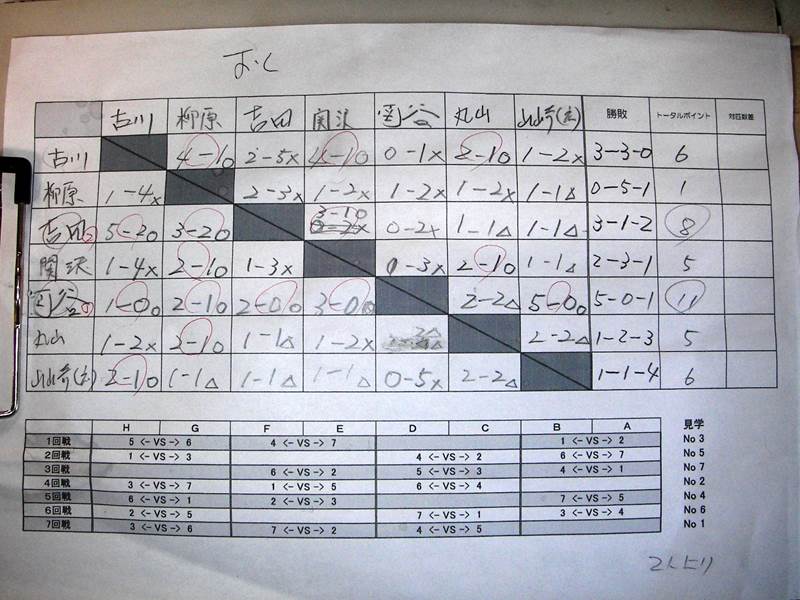 古川 柳原 吉田 関沢 丸山 山崎(広) 勝敗 トータルポイント 対匹数差
古川 4-1○ 2-5× 4-1○ 0-1× 2-1○ 1-2× 3-3-0 6
柳原 1-4× 2-3× 1-2× 1-2× 1-2× 1-1△ 0-5-1 1
吉田② 5-2○ 3-2○ 3-1○ 0-2× 1-1△ 1-1△ 3-1-2 8
関沢 1-4× 2-1○ 1-3× 0-3× 2-1○ 1-1△ 2-3-1 5
① 1-0○ 2-1○ 2-0○ 3-0○ 2-2△ 5-0○ 5-0-1 11
丸山 1-2× 2-1○ 1-1△ 1-2× 2-2△ 1-2-3 5
山崎(広) 2-1○ 1-1△ 1-1△ 1-1△ 0-5× 2-2△ 1-1-4 6
H G F E D C B A 見学
1回戦 5 <- VS -> 6 4 <- VS -> 7 1 <- VS -> 2 No 3
2回戦 1 <- VS -> 3 4 <- VS -> 2 6 <- VS -> 7 No 5
3回戦 6 <- VS -> 2 5 <- VS -> 3 4 <- VS -> 1 No 7
4回戦 3 <- VS -> 7 1 <- VS -> 5 6 <- VS -> 4 No 2
5回戦 6 <- VS -> 1 2 <- VS -> 3 7 <- VS -> 5 No 4
6回戦 2 <- VS -> 5 7 <- VS -> 1 3 <- VS -> 4 No 6
7回戦 3 <- VS -> 6 7 <- VS -> 2 4 <- VS -> 5 No 1